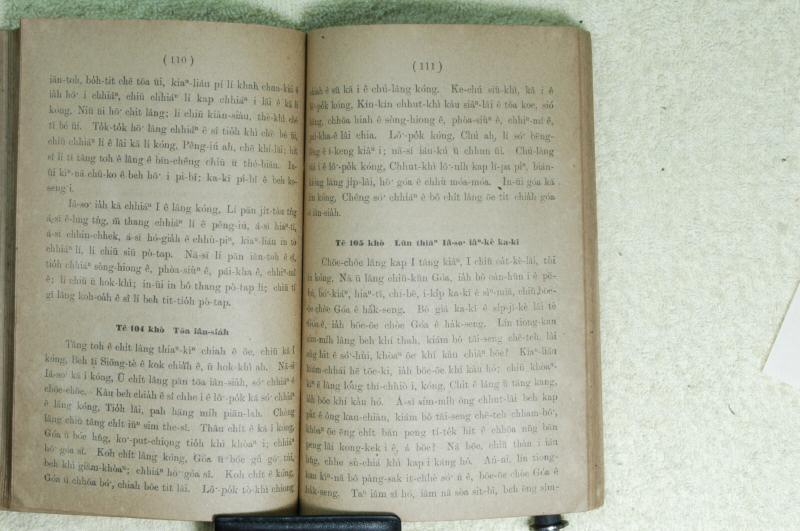 (110)
iân-toh, bóh-tit chē tōa ūi, kiaⁿ-liáu pí lí khah chun-kùi ê
iáh hō͘ i chhiáⁿ, chiū chhiáⁿ lí kap chhiáⁿ i lâi ê kā lí
kóng, Niū ūi hō͘ chit lâng; lí chiū kiàn-siàu, thè-khì chē
tī bé ūi. Tók-tók hō͘ lâng chhiáⁿ ê sî tióh khì chē bé ūi,
chiū chhiáⁿ lí ê lâi kā lí kóng, Pêng-iú ah, chē khí-lâi; hit
sî lí tī tâng toh ê lâng ê bīn-chêng chiū ū thé-biān. In-
ūi kiⁿ-nā chū-ko ê beh hō͘ i pi-bî; ka-kī pi-bî ê beh ko-
seng i.
Iâ-so͘ iáh kā chhiáⁿ I ê lâng kóng, Lí pān jit-tàu tn̄g
á-sī ê-hng tn̄g, m̄ thang chhiáⁿ lí ê pêng-iú, á-sī hiaⁿ-tī,
á-sī chhin-chhek, á-sī hó-giáh ê chhù-piⁿ, kiaⁿ-liáu in tò
chhiáⁿ lí, lí chiū siū pò-tap. Nā-sī lí pān iân-toh ê sî,
tióh chhiáⁿ sòng-hiong ê, phòa-siúⁿ ê, pái-kha ê, chhiⁿ-mî
ê; lí chiū ū hok-khì; in-ūi in bô thang pò-tap lí; chiū tī
gī lâng koh-oáh ê sî lí beh tit-tióh pò-tap.
Tē 104 khò Tōa iân-siáh
Tâng toh ê chit lâng thiaⁿ-kìⁿ chiah ê ōe, chiū kā I
kóng, Beh tī Siōng-tè ê kok chiáh ê, ū hok-khì ah. Nā-sī
Iâ-so͘ kā i kóng, Ū chit lâng pān tōa iân-siáh, só͘ chhiáⁿ ê
chōe-chōe. Kàu beh chiáh ê sî chhe i ê lô͘-pók kā só͘ chhiáⁿ
ê lâng kóng, Tióh lâi, pah hāng mih piān-lah. Chèng
lâng chiū tâng chit iūⁿ sim the-sî. Thâu chit ê kā i kóng,
Góa ū bóe hn̂g, ko͘-put-chiong tióh khì khòaⁿ i; chhiáⁿ
hō͘ góa sî. Koh chit lâng kóng, Góa ū bóe gû gō͘ tùi,
beh khì giām-khòaⁿ; chhiáⁿ hō͘ góa sî. Koh chit ê kóng,
Góa ū chhōa bó͘, chiah bōe tit lâi. Lô͘-pók tò-khì chiong
(111)
chiah ê sū kā i ê chú-lâng kóng. Ke-chú siū-khì, kā i ê
lô͘-pók kóng, Kín-kín chhut-khì kàu siâⁿ-lāi ê tōa koe, sió
hāng, chhōa hiah ê sòng-hiong ê, phòa-siúⁿ ê, chhiⁿ-mî ê,
pái-kha ê lâi chia. Lô͘-pók kóng, Chú ah, lí só͘ bēng-
lēng ê í-keng kiâⁿ i; nā-sī iáu-kú ū chhun ūi. Chú-lâng
kā i ê lô͘-pók kóng, Chhut-khì lō͘-nih kap lî-pa piⁿ, bián-
kióng lâng jip-lâi, hō͘ góa ê chhù móa-móa. In-ūi góa kā
lín kóng, Chêng só͘ chhiáⁿ ê bô chit lâng ōe tit chiáh góa
ê iân-siáh.
Tē 105 khò Lūn thiàⁿ Iâ-so͘ iâⁿ-kè ka-kī
Chōe-chōe lâng kap I tâng kiâⁿ, I chiū oát-kè-lâi, tùi
in kóng, Nā ū lâng chiū-kūn Góa, iáh bô oàn-hūn i ê pē-
bú, bó͘-kiáⁿ, hiaⁿ-tī, chí-bē, í-kip ka-kī ê sìⁿ-miā, chiū bōe-
ōe chòe Góa ê hák-seng. Bô giâ ka-kī ê sip-jī-kè lâi tè
Góa ê, iáh bōe-ōe chòe Góa ê hák-seng. Lín tiong-kan
sím-mih lâng beh khí thah, kiám bô tāi-seng chē-teh, lâi
sǹg lát ê só͘-hùi, khòaⁿ ōe khí kàu chiâⁿ bōe? Kiaⁿ-liáu
kiám-chhái hē tōe-ki, iáh bōe-ōe khí kàu hó; chiū khòaⁿ-
kìⁿ ê lâng lóng thí-chhiò i, kóng, Chit ê lâng ū tâng kang,
iáh bōe khí kàu hó. Á-sī sím-mih ông chhut-lâi beh kap
pát ê ông kau-chiàn, kiám bô tāi-seng chē-teh chham-hó͘,
khòaⁿ ōe ēng chit bān peng tí-ték hit ê chhōa nn̄g bān
peng lâi kong-kek i ê, á bōe? Nā bōe, chiū thàn i iáu
hn̄g, chhe sù-chiá khì kap i káng hô. Án-ni, lín tiong-
kan kìⁿ-nā bô pàng-sak it-chhè só͘ ū ê, bōe-ōe chòe Góa ê
hák-seng. Taⁿ iâm sī hó, iâm nā sòa sit-bī, beh ēng sím-